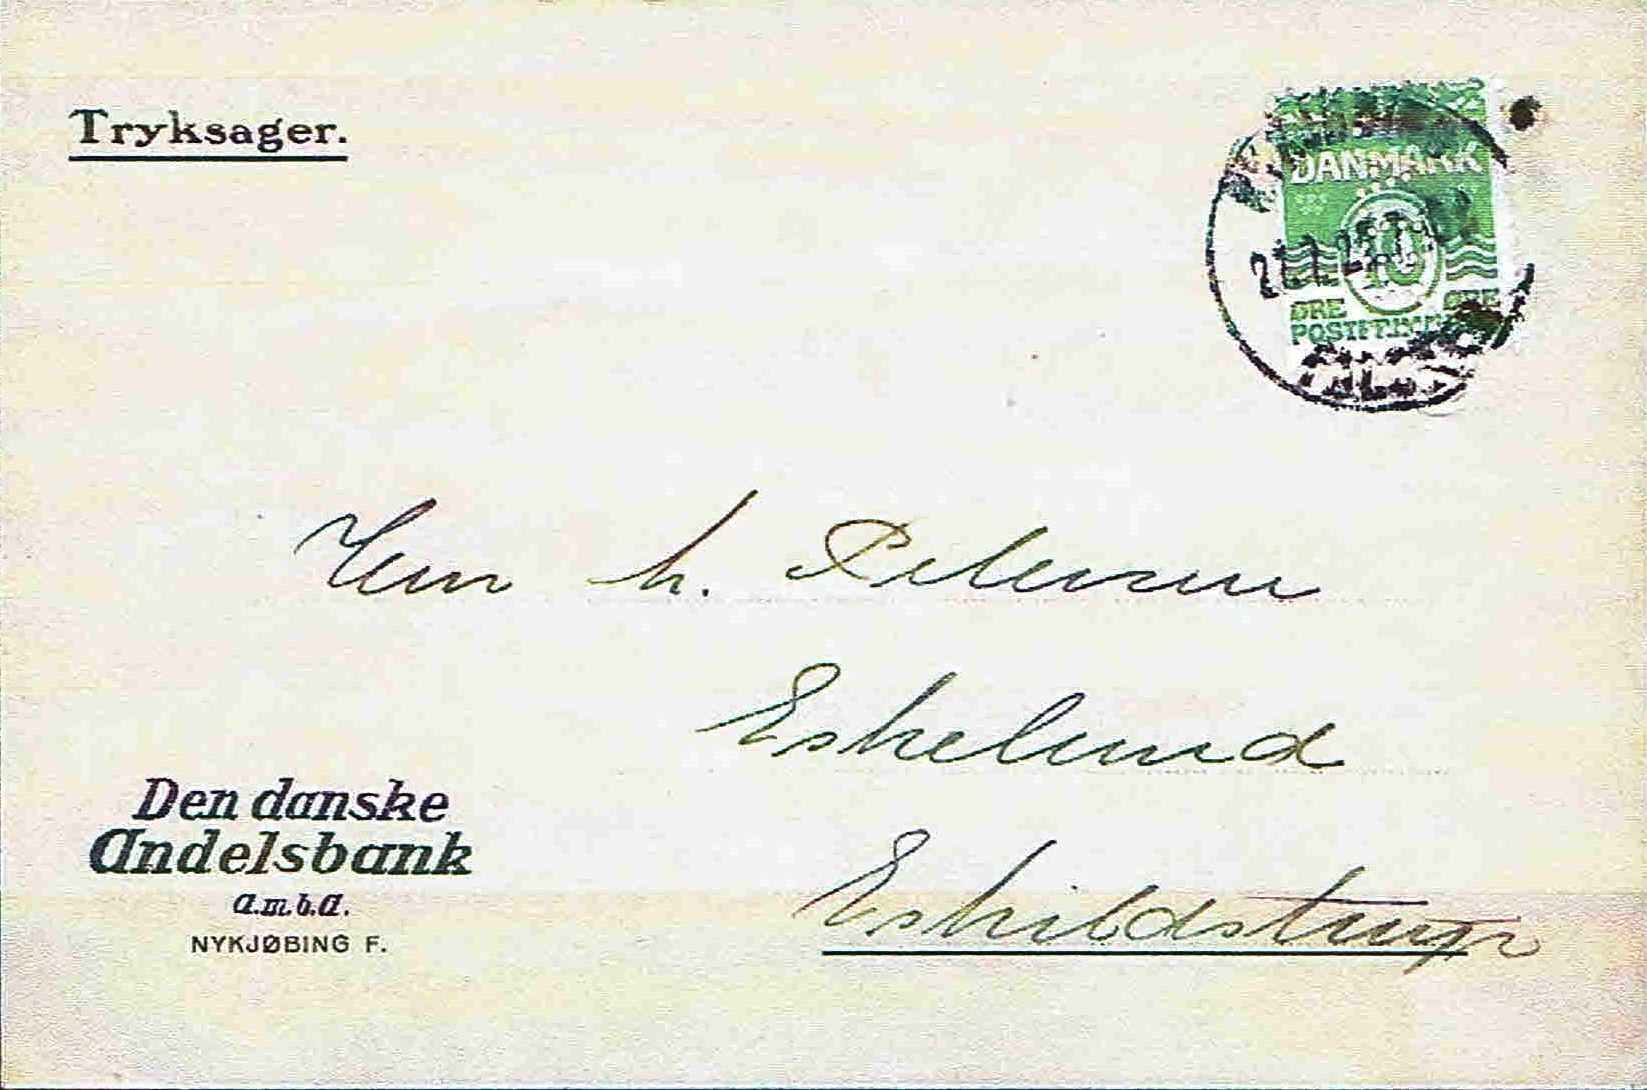 Tryksager.
DANMARK
10
ØRE ØRE
POSTFRIM
Herr h. Petersen
Eskelund
Eskildstrup
Den danske
Andelsbank
A.m.b.A.
NYKJØBING F.